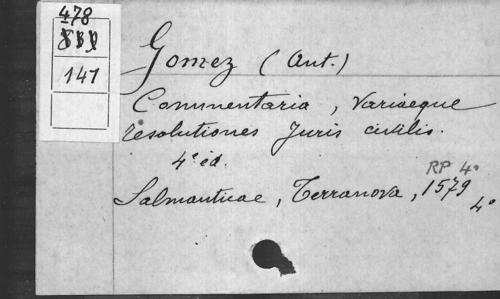 478
147
Gomez (Ant.)
Commentaria, variaeque
resolutiones Juris civilis.
4e éd.
RP 4o
Salmanticae, Terranova, 1579
4o